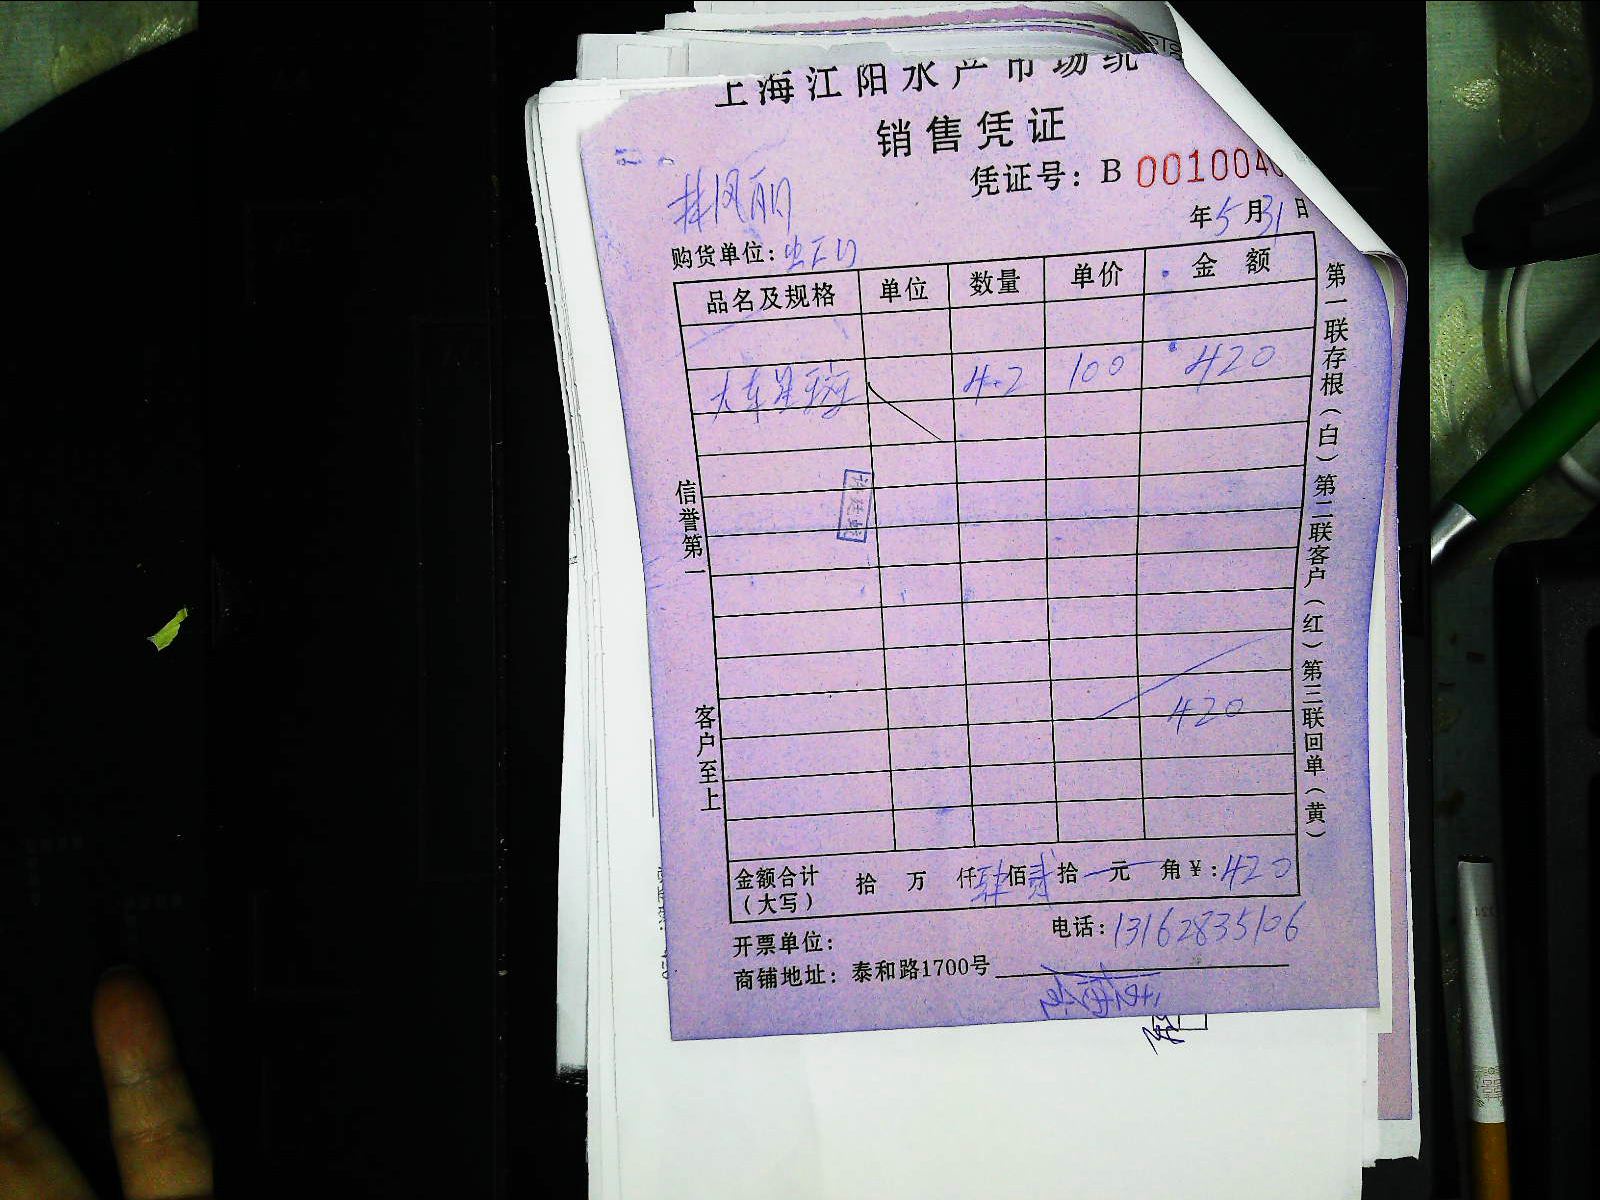 上海江阳水产市场统
销售凭证
凭证号：B 001004
林凤丽
年5月31日
购货单位：
品名及规格 单位 数量 单价 金额
大东星斑 4.2 100 420
420
金额合计（大写） 拾 万 仟肆佰贰拾 元 角￥：420
电话：13162835106
开票单位：
商铺地址：泰和路1700号
信誉第一
客户至上
第一联存根（白）第二联客户（红）第三联回单（黄）